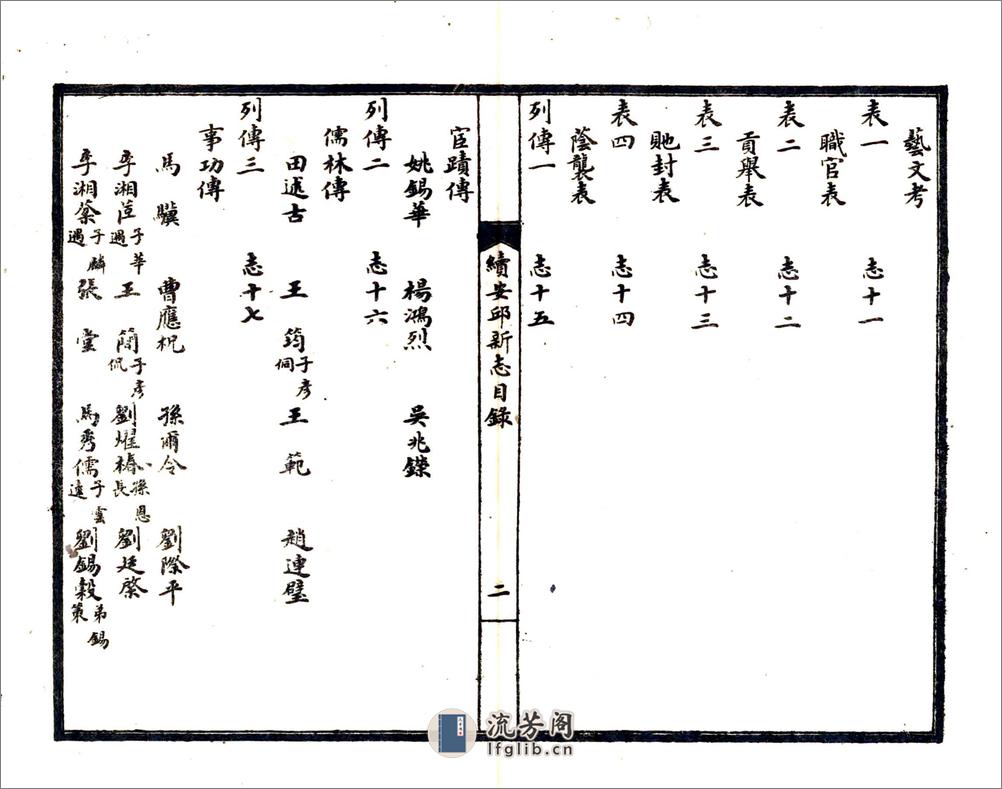 藝文考
表一 志十一
職官表
表二 志十二
貢舉表
表三 志十三
貤封表
表四 志十四
蔭襲表
列傳一 志十五
續安邱新志目錄 二
宦蹟傳
姚錫華 楊鴻烈 吳兆鑅
列傳二 志十六
儒林傳
田述古 王筠子彥侗 王範 趙連璧
列傳三 志十七
事功傳
馬驥 曹應枳 孫爾令 劉際平
李湘茝子華遇 王簡子彥侃 劉燿椿孫恩長 劉廷棨
李湘棻子麟遇 張雲 馬秀儒子雲逵 劉錫穀弟錫策
流芳阁
lfglib.cn